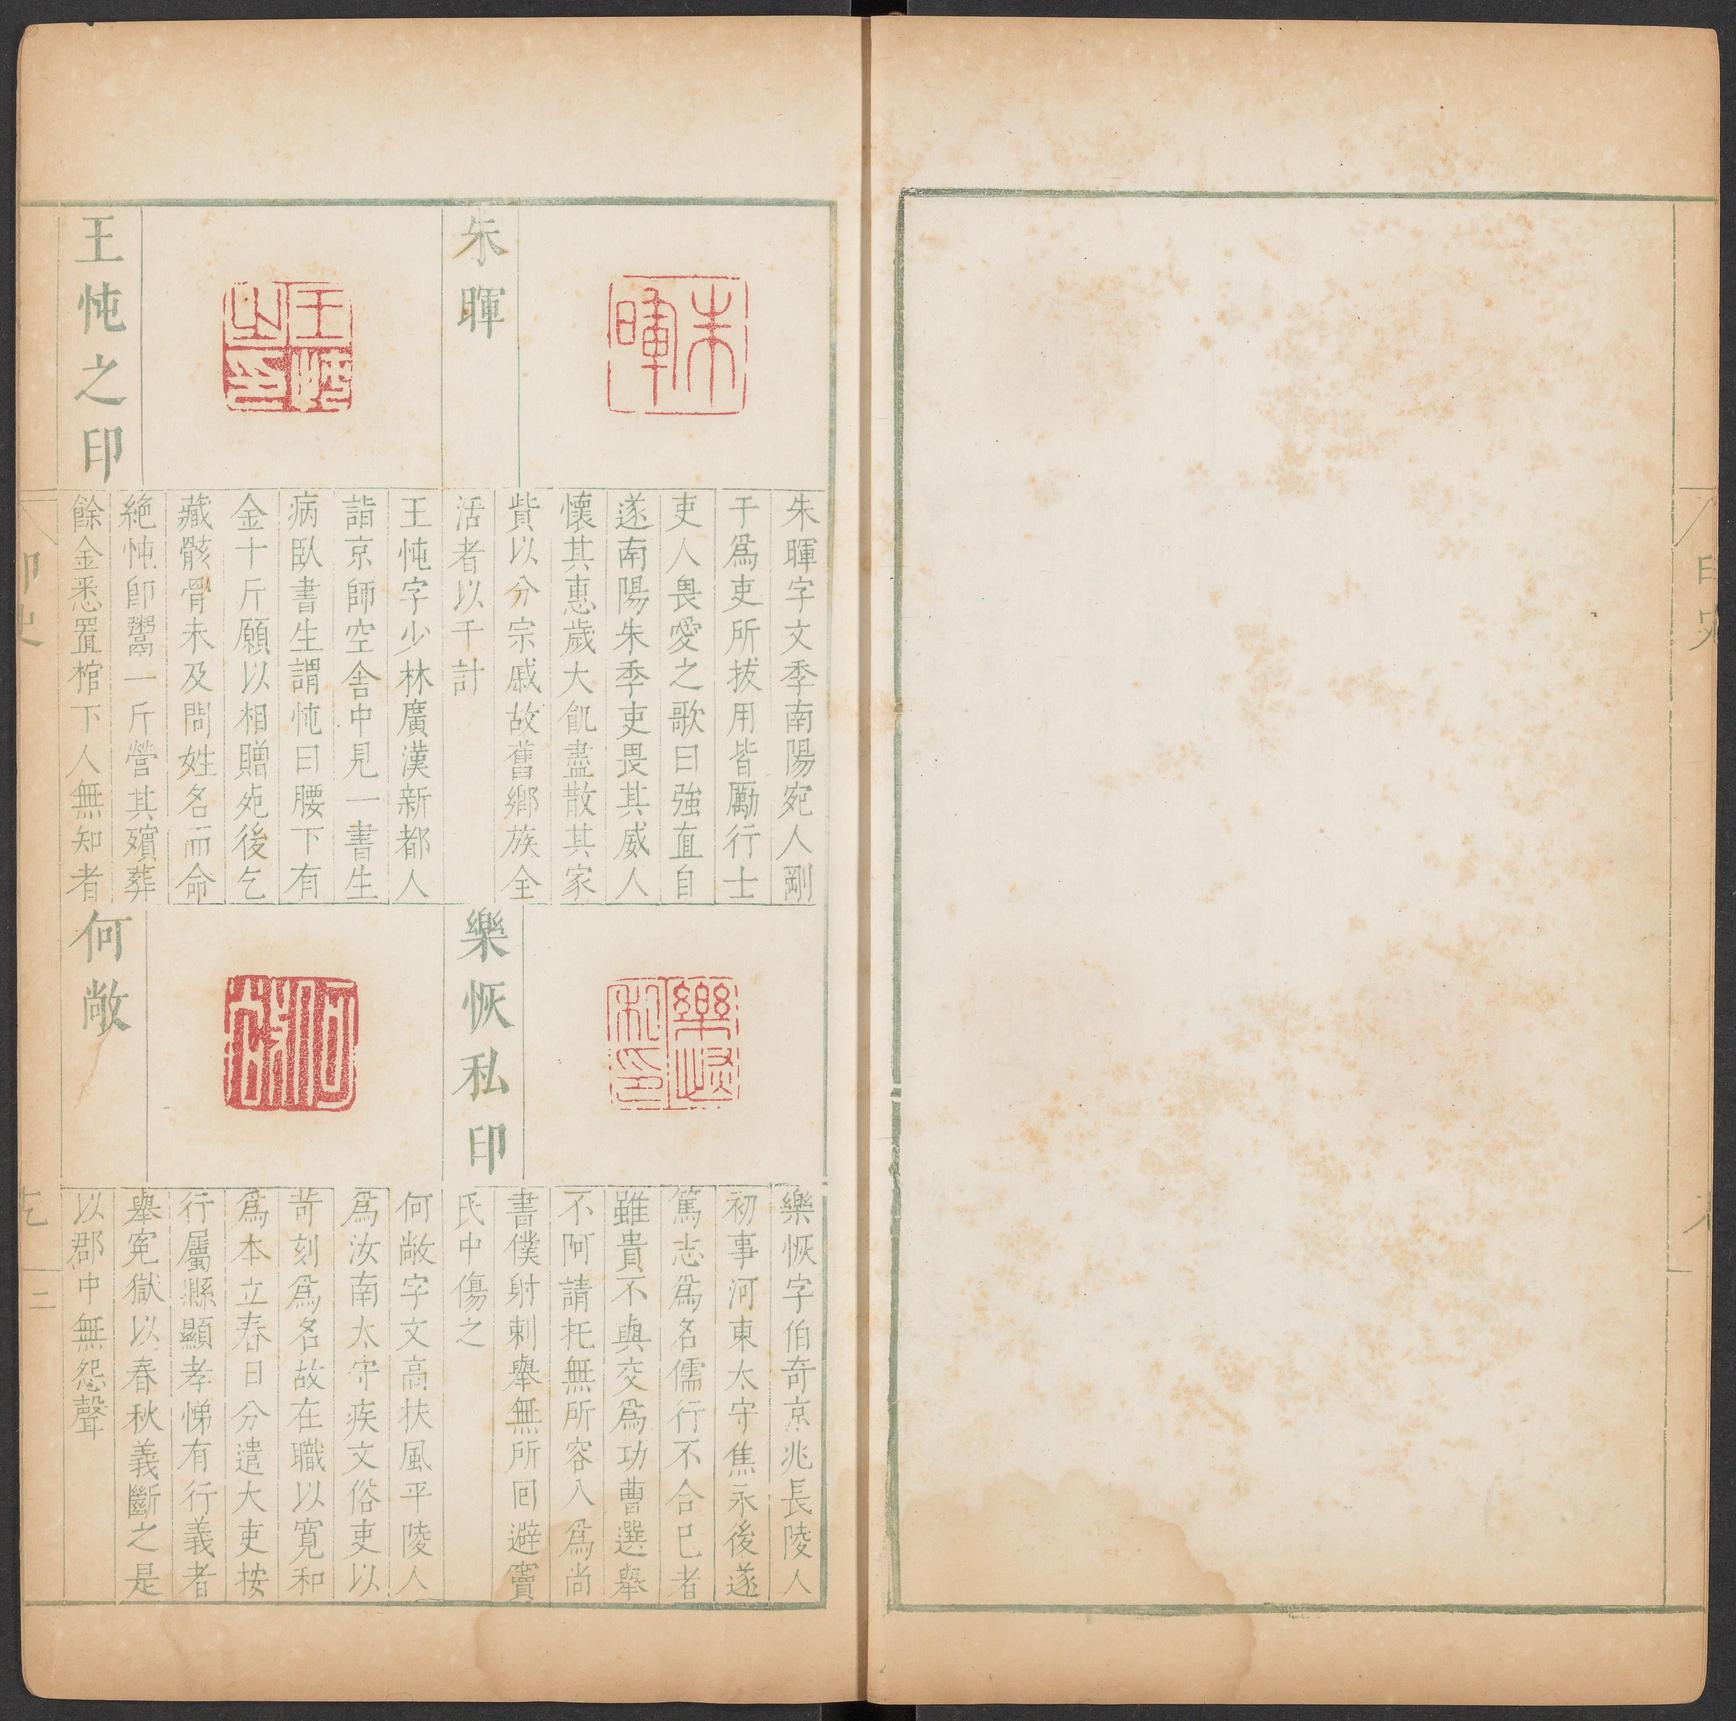 朱暉
朱暉字文季南陽宛人剛
于為吏所拔用皆厲行士
吏人畏愛之歌曰強直自
遂南陽朱季吏畏其威人
懷其惠歲大飢盡散其家
貲以分宗戚故舊鄉族全
活者以千計
王忳之印
王忳字少林廣漢新都人
詣京師空舍中見一書生
病臥書生謂忳曰腰下有
金十斤願以相贈死後乞
藏骸骨未及問姓名而命
絶忳卽鬻一斤營其殯葬
餘金悉置棺下人無知者
樂恢私印
樂恢字伯奇京兆長陵人
初事河東太守焦永後遂
篤志為名儒行不合己者
雖貴不與交為功曹選舉
不阿請托無所容入為尚
書僕射刺舉無所回避竇
氏中傷之
何敞
何敞字文高扶風平陵人
為汝南太守疾文俗吏以
苛刻為名故在職以寬和
為本立春日分遣大吏按
行屬縣顯孝悌有行義者
舉冤獄以春秋義斷之是
以郡中無怨聲
印史